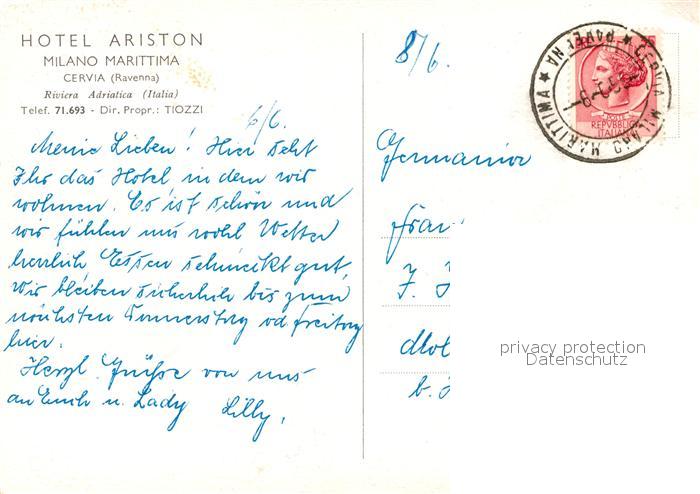 HOTEL ARISTON
MILANO MARITTIMA
CERVIA (Ravenna)
Riviera Adriatica (Italia)
Telef. 71.693 - Dir. Propr.: TIOZZI
6/6.
Meine Lieben! Hier seht
Ihr das Hotel in dem wir
wohnen. Es ist schön und
wir fühlen uns wohl Wetter
herrlich Essen schmeckt gut,
wir bleiben sicherlich bis zum
nächsten Donnerstag od freitag
hier.
Herzl. Grüße von uns
an Euch u. Lady Lilly,
8/6.
Germania
Frau
CERVIA MILANO MARITTIMA
RAVENNA
POSTE
REPVBBLICA
ITALIANA
privacy protection
Datenschutz